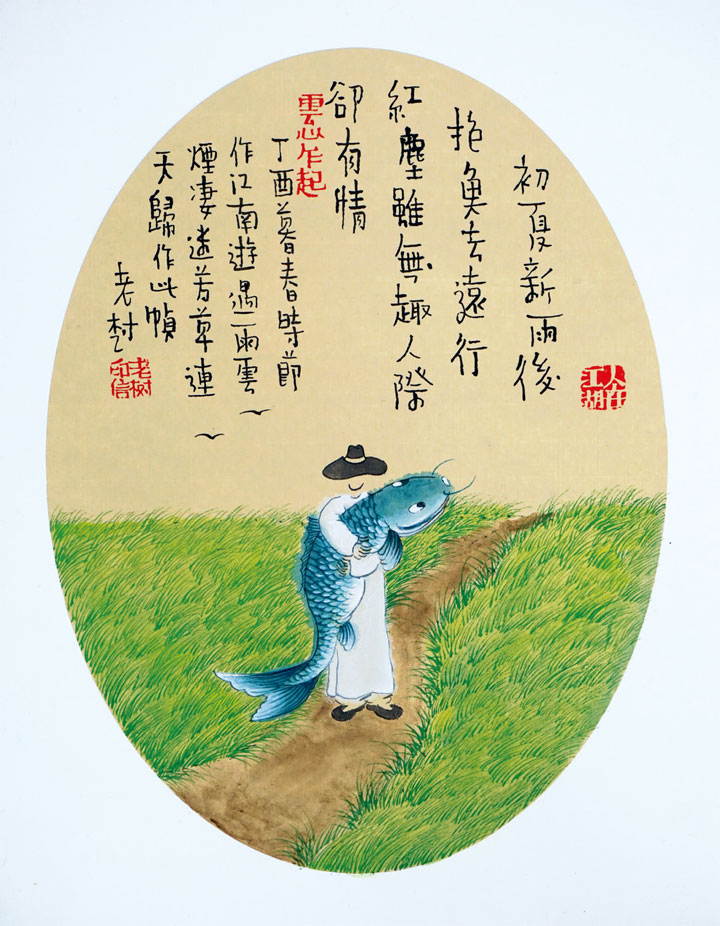 人在江湖
初夏新雨後
抱魚去遠行
紅塵雖無趣人際
卻有情
雲心乍起
丁酉暮春時節
作江南遊遇雨雲
煙淒迷芳草連
天歸作此幀
老树
老树印信